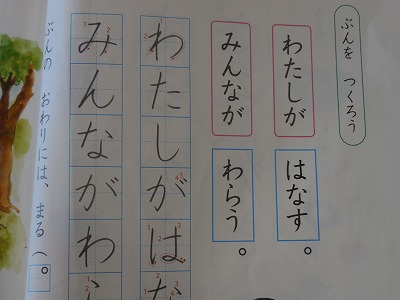 ぶんを つくろう
わたしが はなす。
みんなが わらう。
わたしがはな
みんながわら
ぶんの おわりには、まる（。